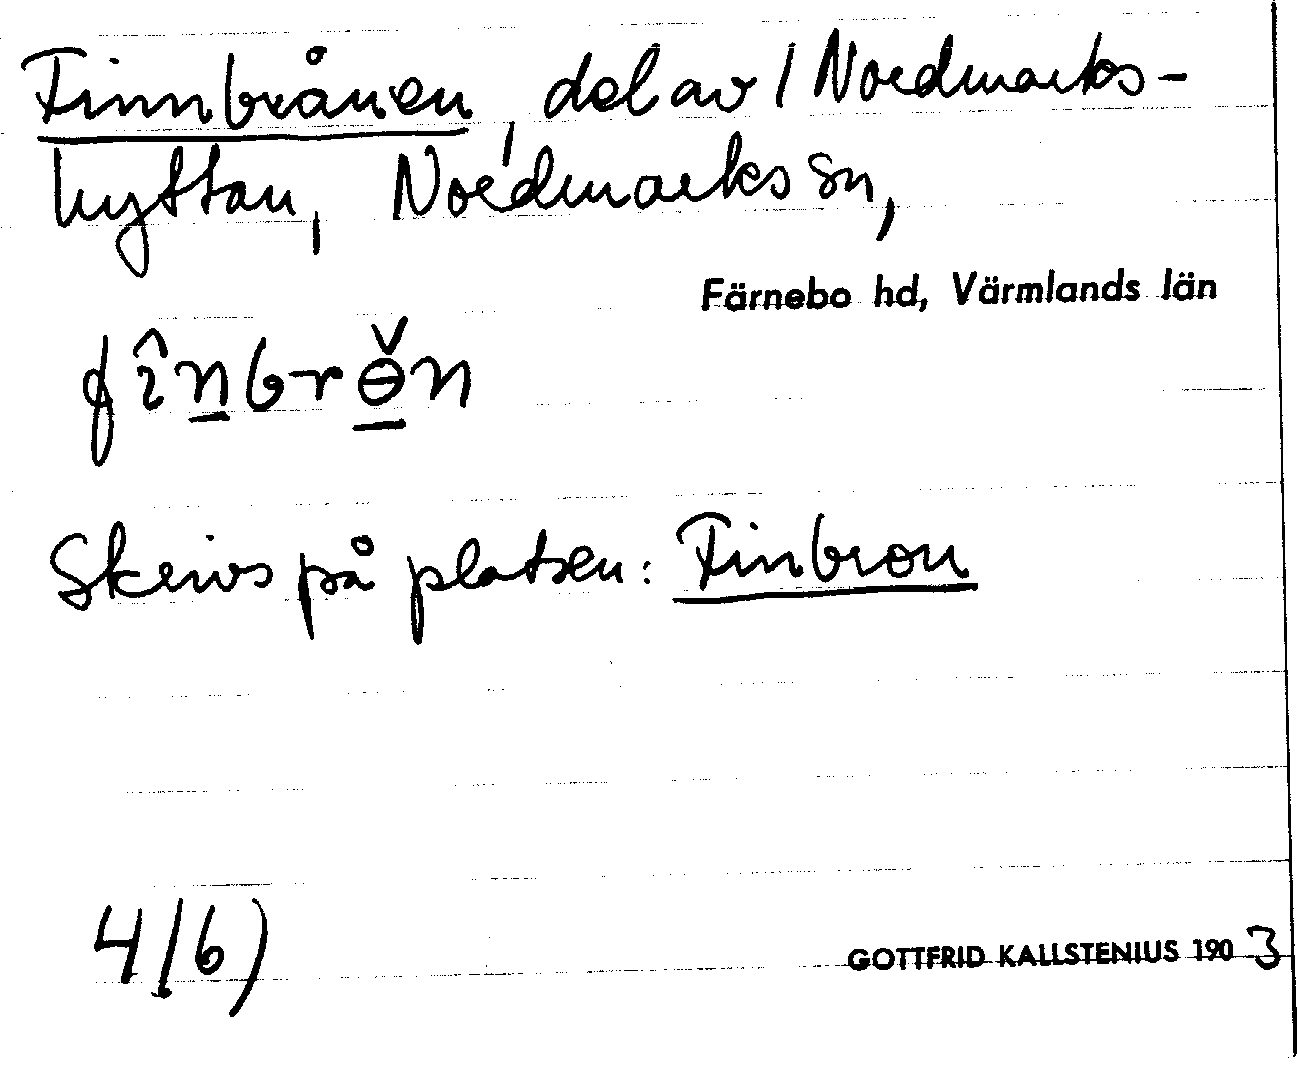 Finnbrånen, del av 1 Nordmarks-
hyttan, Nordmarks sn,
Färnebo hd, Värmlands län
fînbrɵ̌n
Skrivs på platsen: Finbron
4/6)
GOTTFRID KALLSTENIUS 1903